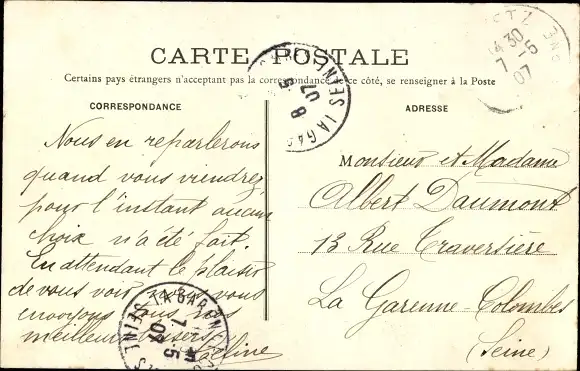 CARTE POSTALE
Certains pays étrangers n'acceptant pas la correspondance de ce côté, se renseigner à la Poste
CORRESPONDANCE
Nous en reparlerons
quand vous viendrez,
pour l'instant aucun
choix n'a été fait.
En attendant le plaisir
de vous voir nous vous
envoyons tous nos
meilleurs baisers
ADRESSE
Monsieur et Madame
Albert Daumont
13 Rue Traversière
La Garenne-Colombes
(Seine)
30
7 -5
07
8 -5
07
LA GAR
7 -5
07